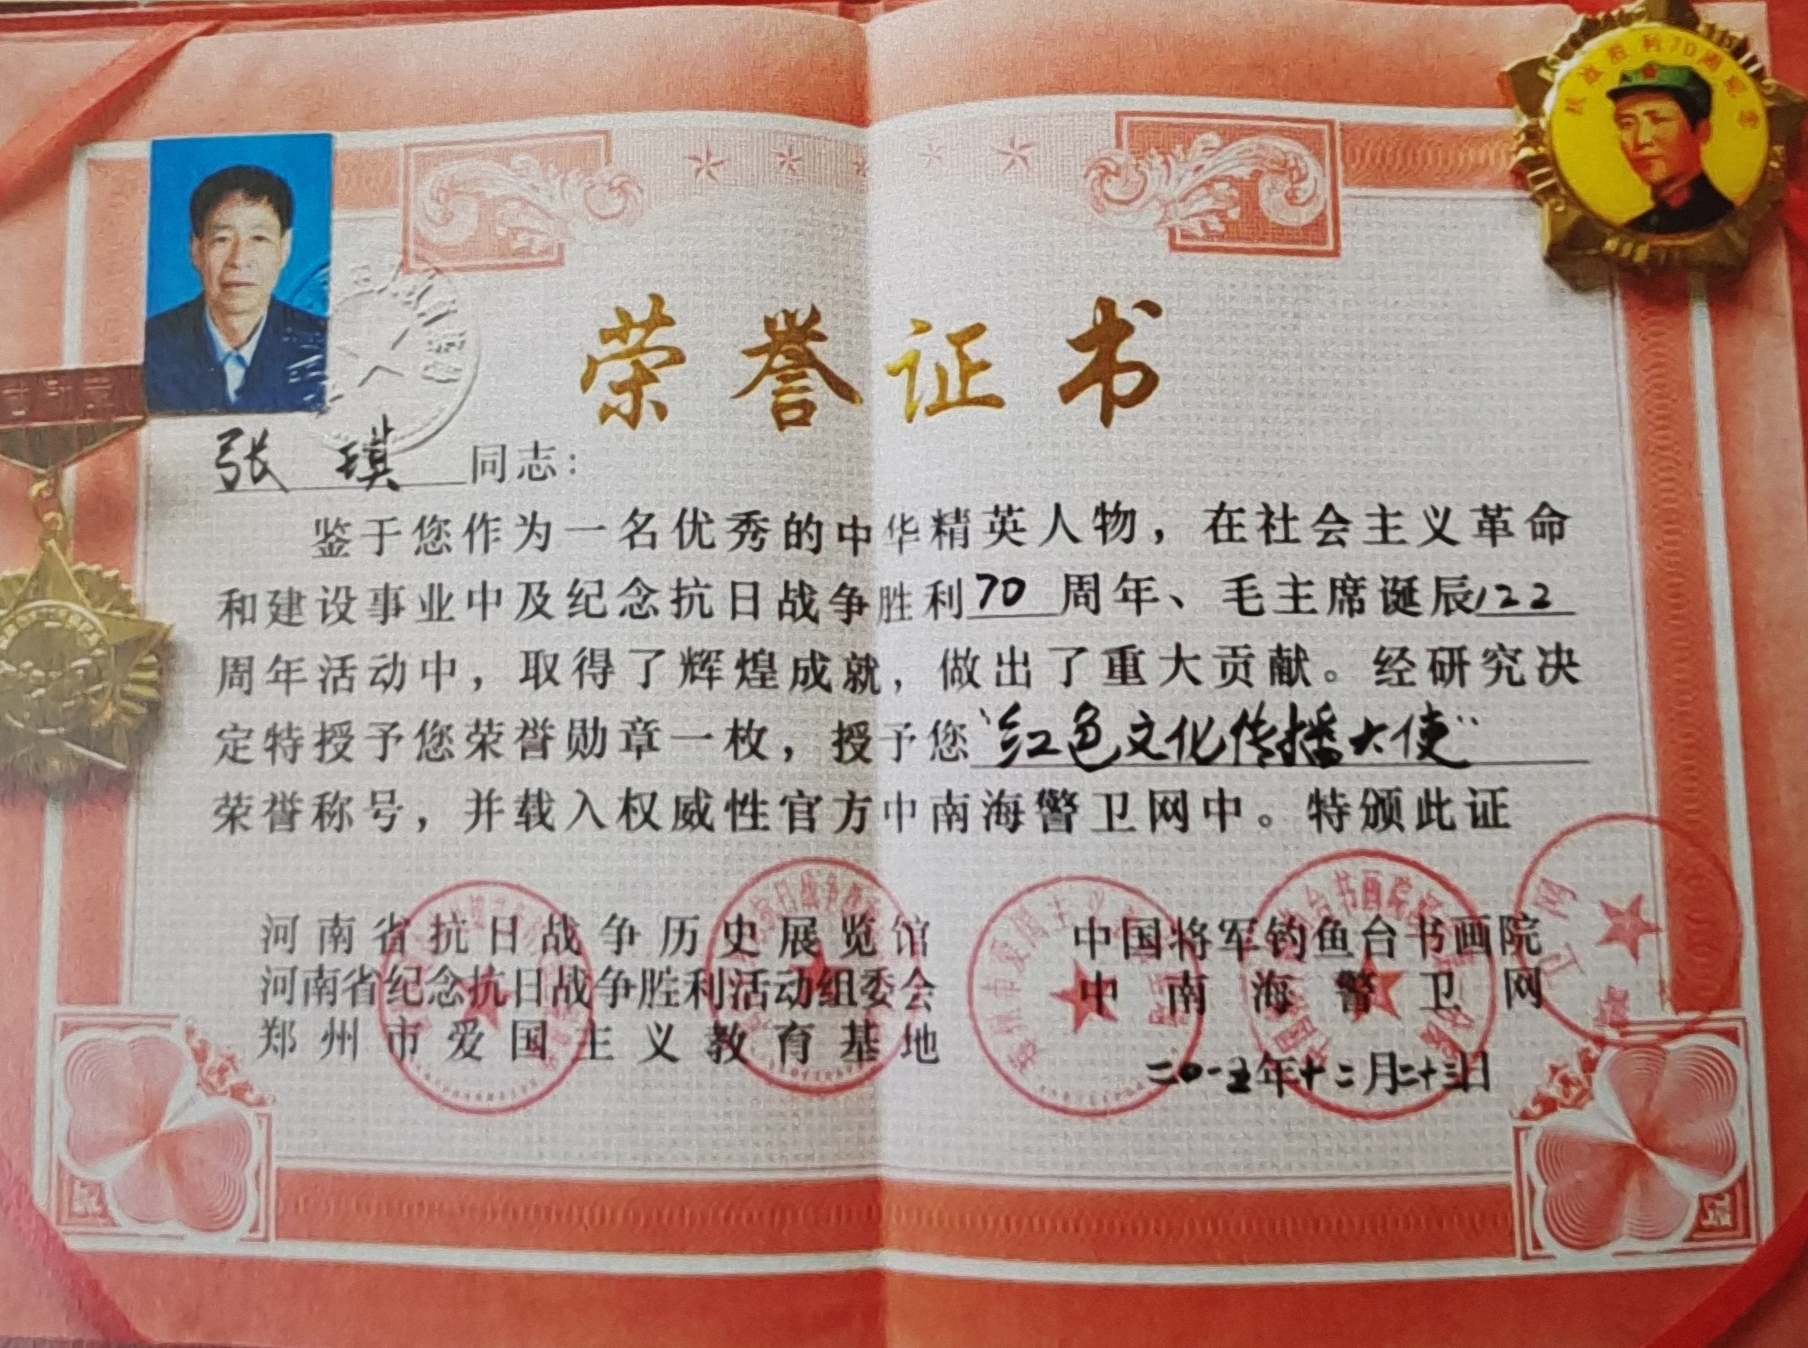 抗战胜利70周年
荣誉证书
张琪 同志：
鉴于您作为一名优秀的中华精英人物，在社会主义革命
和建设事业中及纪念抗日战争胜利70周年、毛主席诞辰122
周年活动中，取得了辉煌成就，做出了重大贡献。经研究决
定特授予您荣誉勋章一枚，授予您“红色文化传播大使”
荣誉称号，并载入权威性官方中南海警卫网中。特颁此证
河南省抗日战争历史展览馆
河南省纪念抗日战争胜利活动组委会
郑州市爱国主义教育基地
中国将军钓鱼台书画院
中南海警卫网
二〇一五年十二月二十三日